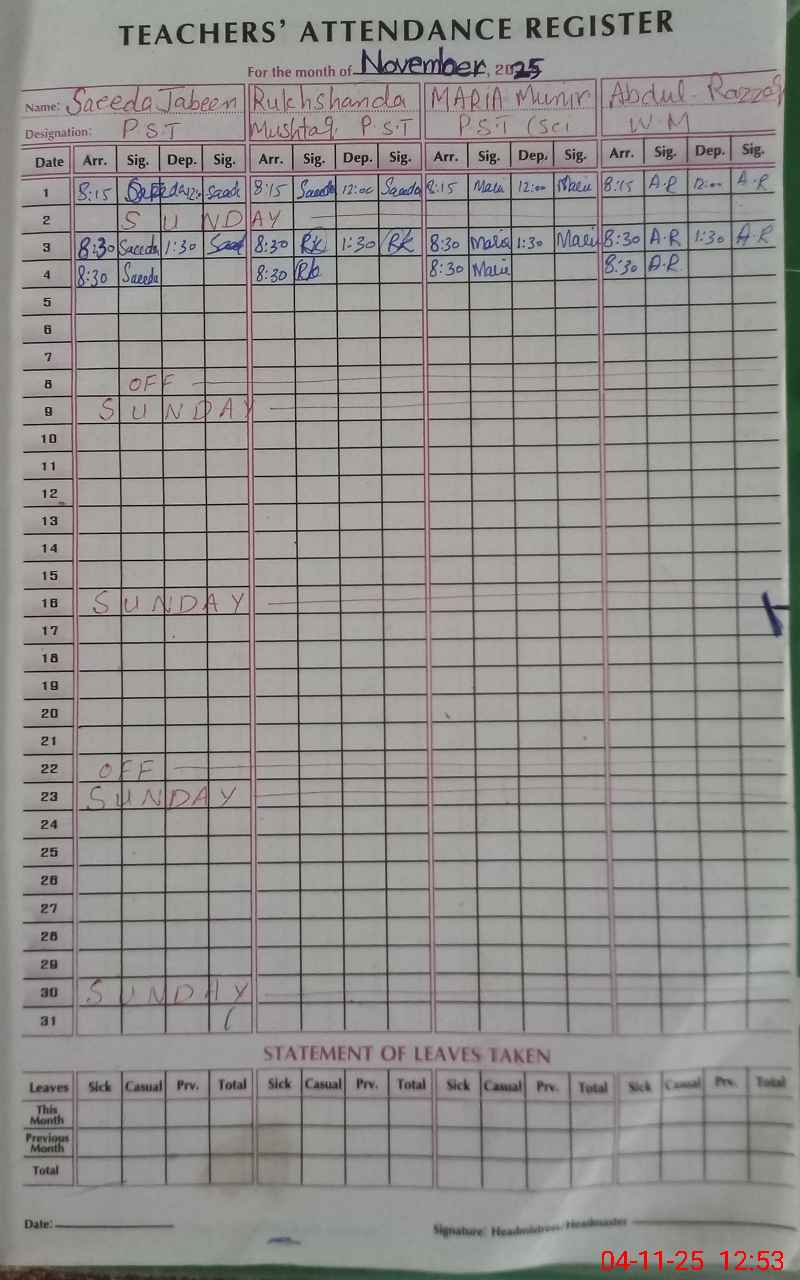 TEACHERS' ATTENDANCE REGISTER
For the month of November, 2025
Name: Saeeda Jabeen Rukhshanda MARIA Munir Abdul Razzaq
Designation: P.S.T Mushtaq P.S.T P.S.T (Sci W.M
Date Arr. Sig. Dep. Sig. Arr. Sig. Dep. Sig. Arr. Sig. Dep. Sig. Arr. Sig. Dep. Sig.
1 8:15 Saeeda 12:00 Saeed 8:15 Saeeda 12:00 Saeeda 8:15 Maria 12:00 Maria 8:15 A.R 12:00 A.R
2 SUNDAY
3 8:30 Saeeda 1:30 Saeed 8:30 RK 1:30 RK 8:30 Maria 1:30 Maria 8:30 A.R 1:30 A.R
4 8:30 Saeeda 8:30 Rk 8:30 Maria 8:30 A.R
5
6
7
8 OFF
9 SUNDAY
10
11
12
13
14
15
16 SUNDAY
17
18
19
20
21
22 OFF
23 SUNDAY
24
25
26
27
28
29
30 SUNDAY
31
STATEMENT OF LEAVES TAKEN
Leaves Sick Casual Prv. Total Sick Casual Prv. Total Sick Casual Prv. Total Sick Casual Prv. Total
This
Month
Previous
Month
Total
Date:
Signature: Headmistress/Headmaster
04-11-25 12:53